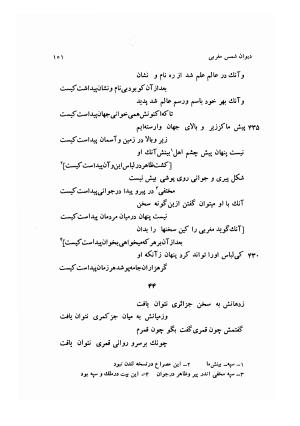 دیوان شمس مغربی
۱۵۱
وآنك در عالم علم شد از ره نام و نشان
بعد از آن کو بود بی نام و نشان پیداست کیست
وآنك بهر خود باسم ورسم عالم شد پدید
تا که اکنونش همی خوانی جهان پیداست کیست
۲۳۵ پیش ماکز زیر و بالای جهان وارسته‌ایم
زیر وبالا در زمین و آسمان پیداست کیست
نیست پنهان پیش چشم اهل ۱ بینش آنك او
[گشت ظاهر در لباس این و آن پیداست کیست]۲
شکل پیری و جوانی روی پوشی بیش نیست
مختفی ۳ در پیرو پیدا در جوانی پیداست کیست
آنك با او میتوان گفتن ازین گونه سخن
نیست پنهان درمیان مردمان پیداست کیست
[آنك گوید مغربی را کین سخنها را بدان
بعد از آن بر هر که میخواهی بخوان پیداست کیست]۴
۲۴۰ کی لباس اورا تواند کرد پنهان زآنکه او
گر هزاران جامه پوشد هر زمان پیداست کیست
۴۴
زدهانش به سخن جز اثری نتوان یافت
وزمیانش به میان جز کمری نتوان یافت
گفتمش چون قمری گفت بگو چون قمرم
چونك برسرو روانی قمری نتوان یافت
۱ـ سپه‍ـ بینش ما
۲ـ این مصراع در نسخه لندن نبود
۳ـ سپه مختفی اندر پیر وظاهر در جوان
۴ـ این بیت در ملك و سپه بود